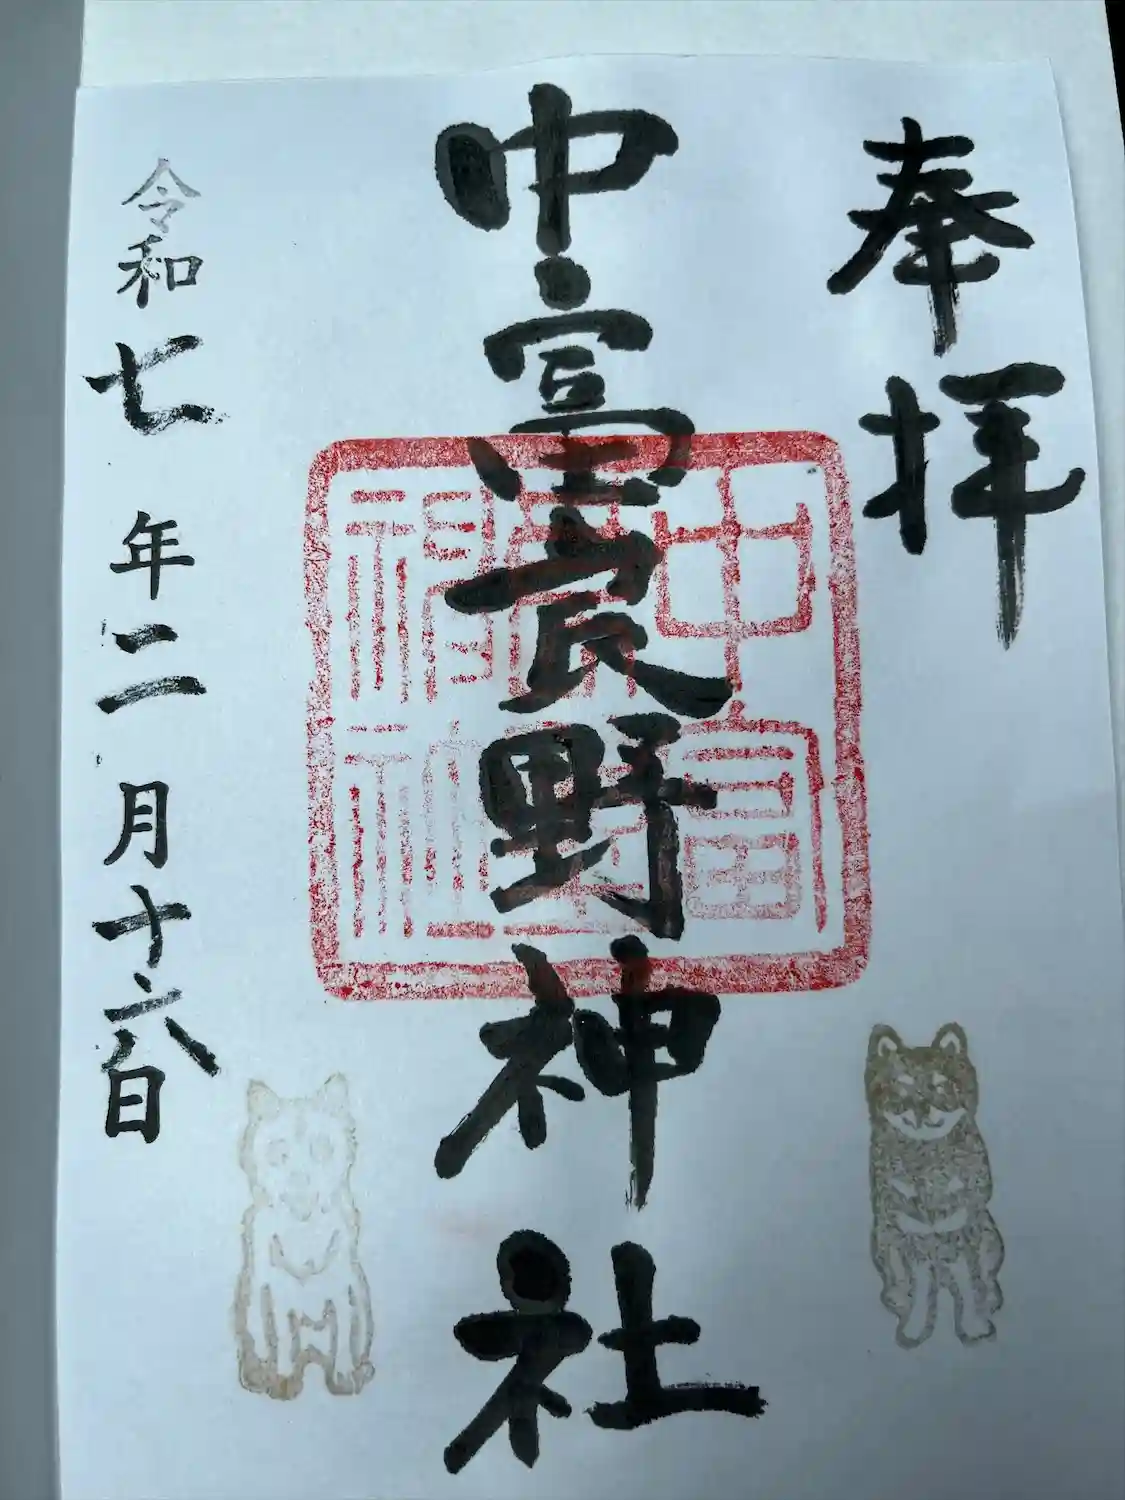 奉拝
中富良野神社
中富
良野
神社
令和七年二月十六日